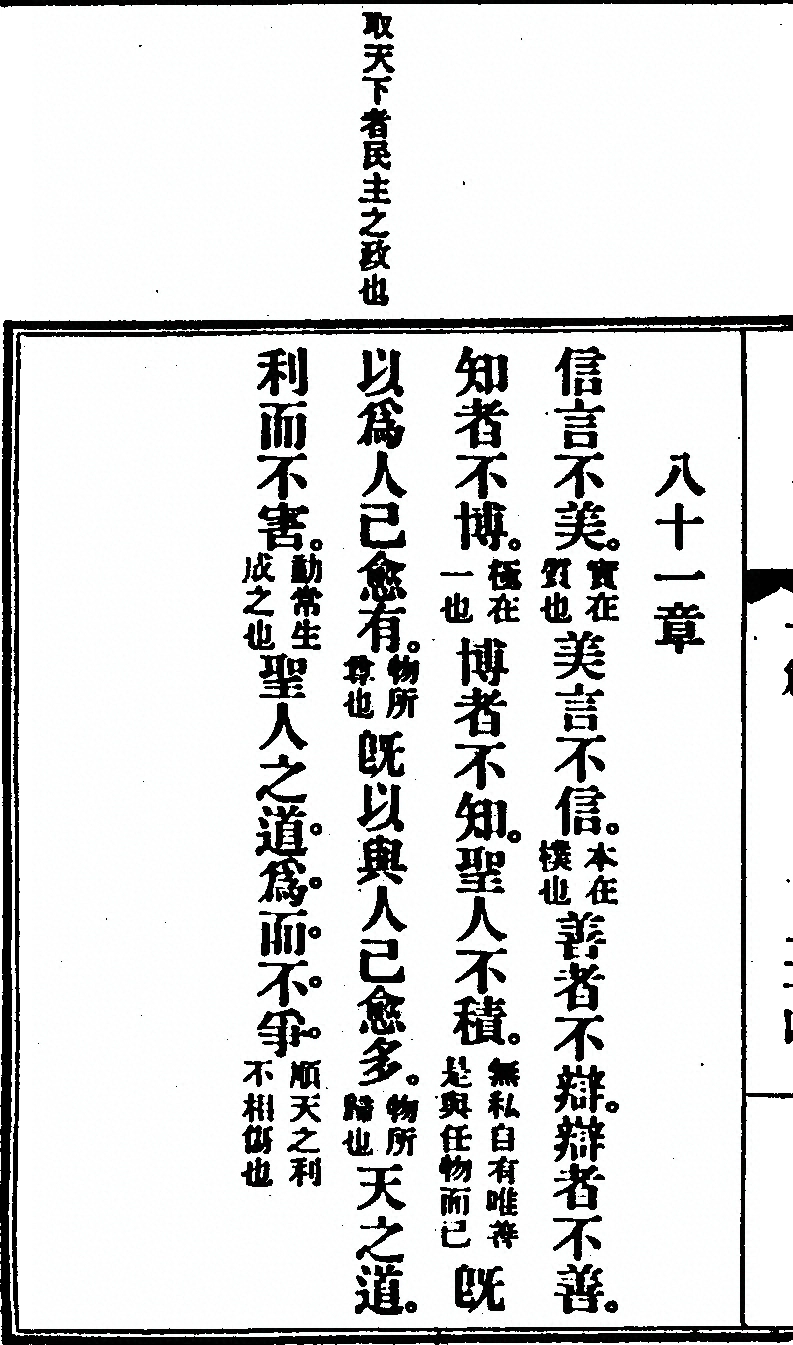 取天下者民主之政也
八十一章
信言不美。實在質也美言不信。本在樸也善者不辯。辯者不善。
知者不博。極在一也博者不知。聖人不積。無私自有唯善是與任物而已既
以爲人己愈有。物所尊也既以與人己愈多。物所歸也天之道。
利而不害。動常生成之也聖人之道。爲。而。不。爭。順天之利不相傷也